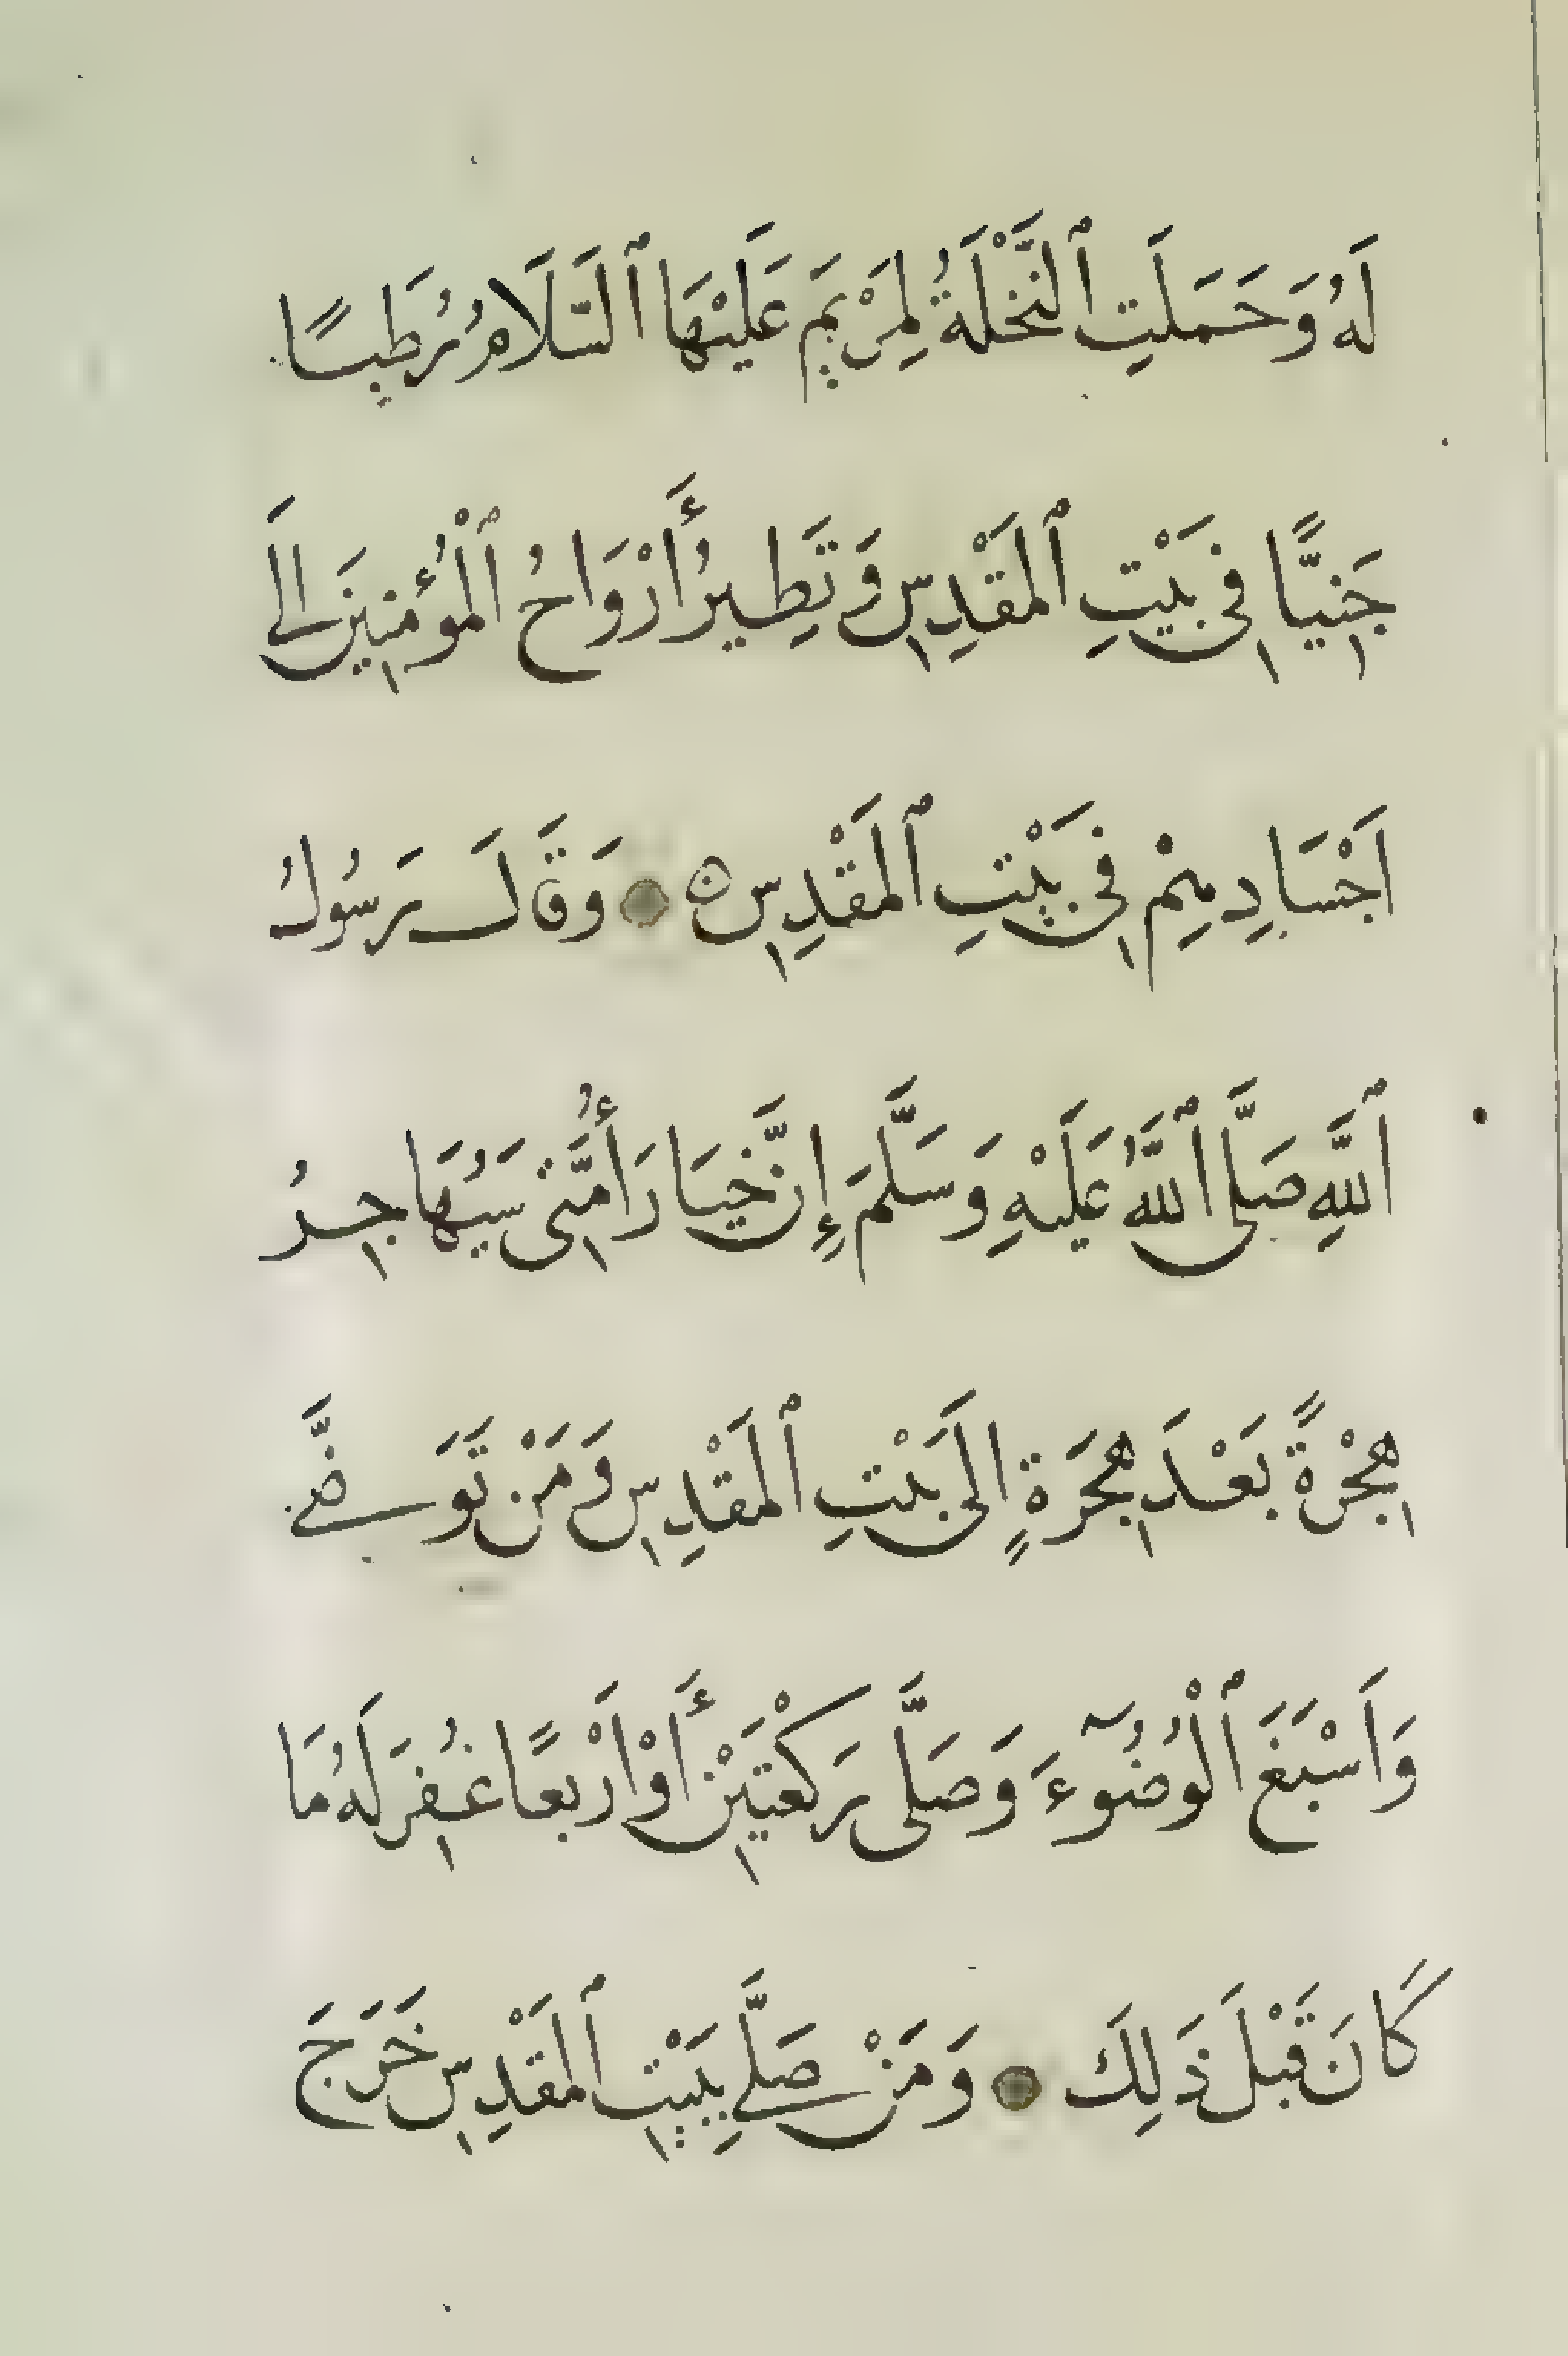 لَهُ وَحَمَلَتِ ٱلنَّخْلَةُ لِمَرْيَمَ عَلَيْهَا ٱلسَّلَامُ رُطَبًا
جَنِيًّا فِي بَيْتِ ٱلْمَقْدِسِ وَتَطِيرُ أَرْوَاحُ ٱلْمُؤْمِنِينَ إِلَى
أَجْسَادِهِمْ فِي بَيْتِ ٱلْمَقْدِسِ ۞ وَقَالَ رَسُولُ
ٱللَّهِ صَلَّى ٱللَّهُ عَلَيْهِ وَسَلَّمَ إِنَّ خِيَارَ أُمَّتِي سَيُهَاجِرُ
هِجْرَةً بَعْدَ هِجْرَةٍ إِلَى بَيْتِ ٱلْمَقْدِسِ وَمَنْ تَوَضَّى
وَأَسْبَغَ ٱلْوُضُوٓءَ وَصَلَّى رَكْعَتَيْنِ أَوْ أَرْبَعًا غُفِرَ لَهُ مَا
كَانَ قَبْلَ ذَلِكَ ۞ وَمَنْ صَلَّى بِبَيْتِ ٱلْمَقْدِسِ خَرَجَ